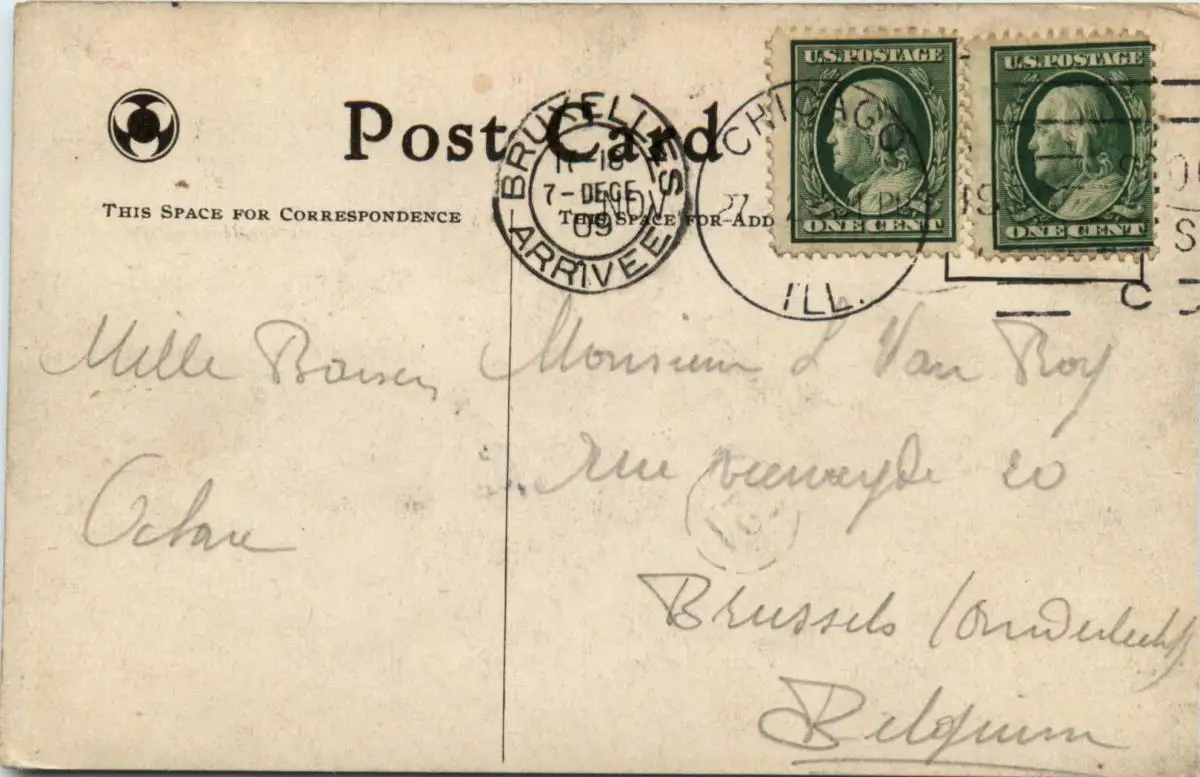 Post Card
THIS SPACE FOR CORRESPONDENCE
THIS SPACE FOR ADD
U.S. POSTAGE
ONE CENT
U.S. POSTAGE
ONE CENT
BRUXELLES
7-DECE
09
ARRIVEE
CHICAGO
27 NOV
ILL.
Mille Baisers
Octave
Monsieur L Van Roy
Rue veeweyde 20
Brussels (Anderlecht)
Belgium